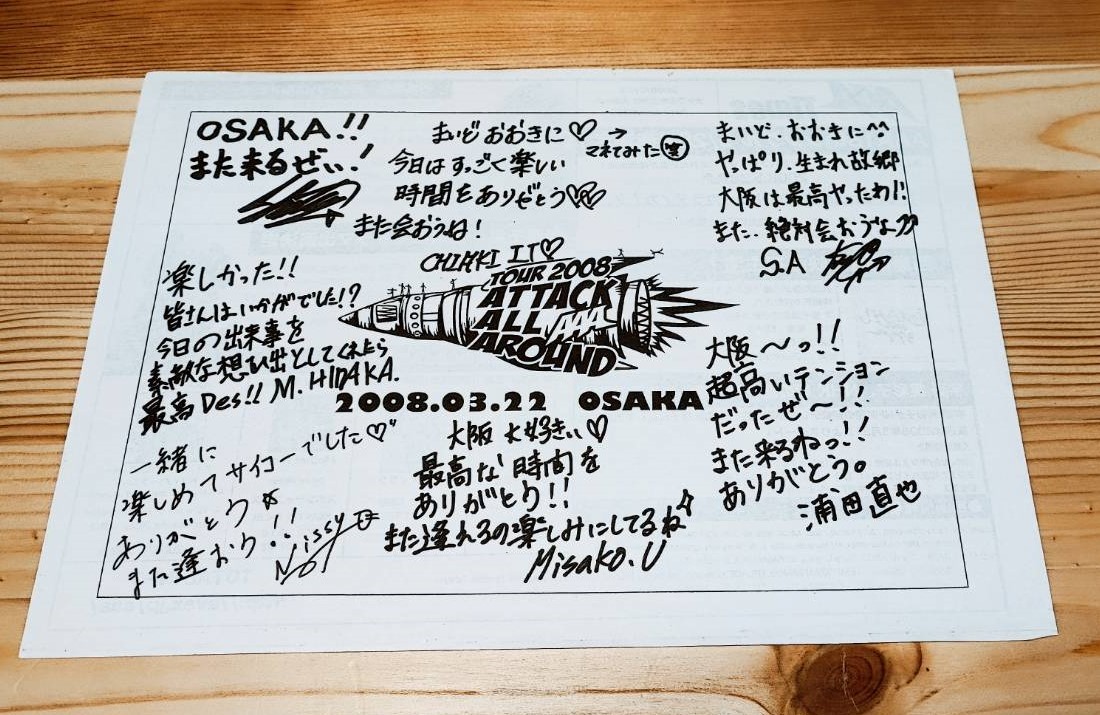 OSAKA!!
また来るぜぃ!
まいどおおきに♡→
マネてみた笑
今日はすっごく楽しい
時間をありがとう♡♡
また会おうね!
CHIAKI ITO♡
まいど、おおきに^^
やっぱり、生まれ故郷
大阪は最高やったわ!!
また、絶対会おうなァ
S.A
楽しかった!!
皆さんはいかがでした!?
今日の出来事を
素敵な想ひ出としてくれたら
最高Des!! M.HIDAKA.
TOUR 2008
ATTACK
ALL AAA
AROUND
2008.03.22 OSAKA
大阪〜っ!!
超高いテンション
だったぜ〜!!
また来るねっ!!
ありがとう。
浦田直也
一緒に
楽しめてサイコーでした♡"
ありがとう☆
また逢おう!!
Nissy
大阪大好きぃ♡
最高な時間を
ありがとう!!
また逢えるの楽しみにしてるね☆
Misako.U